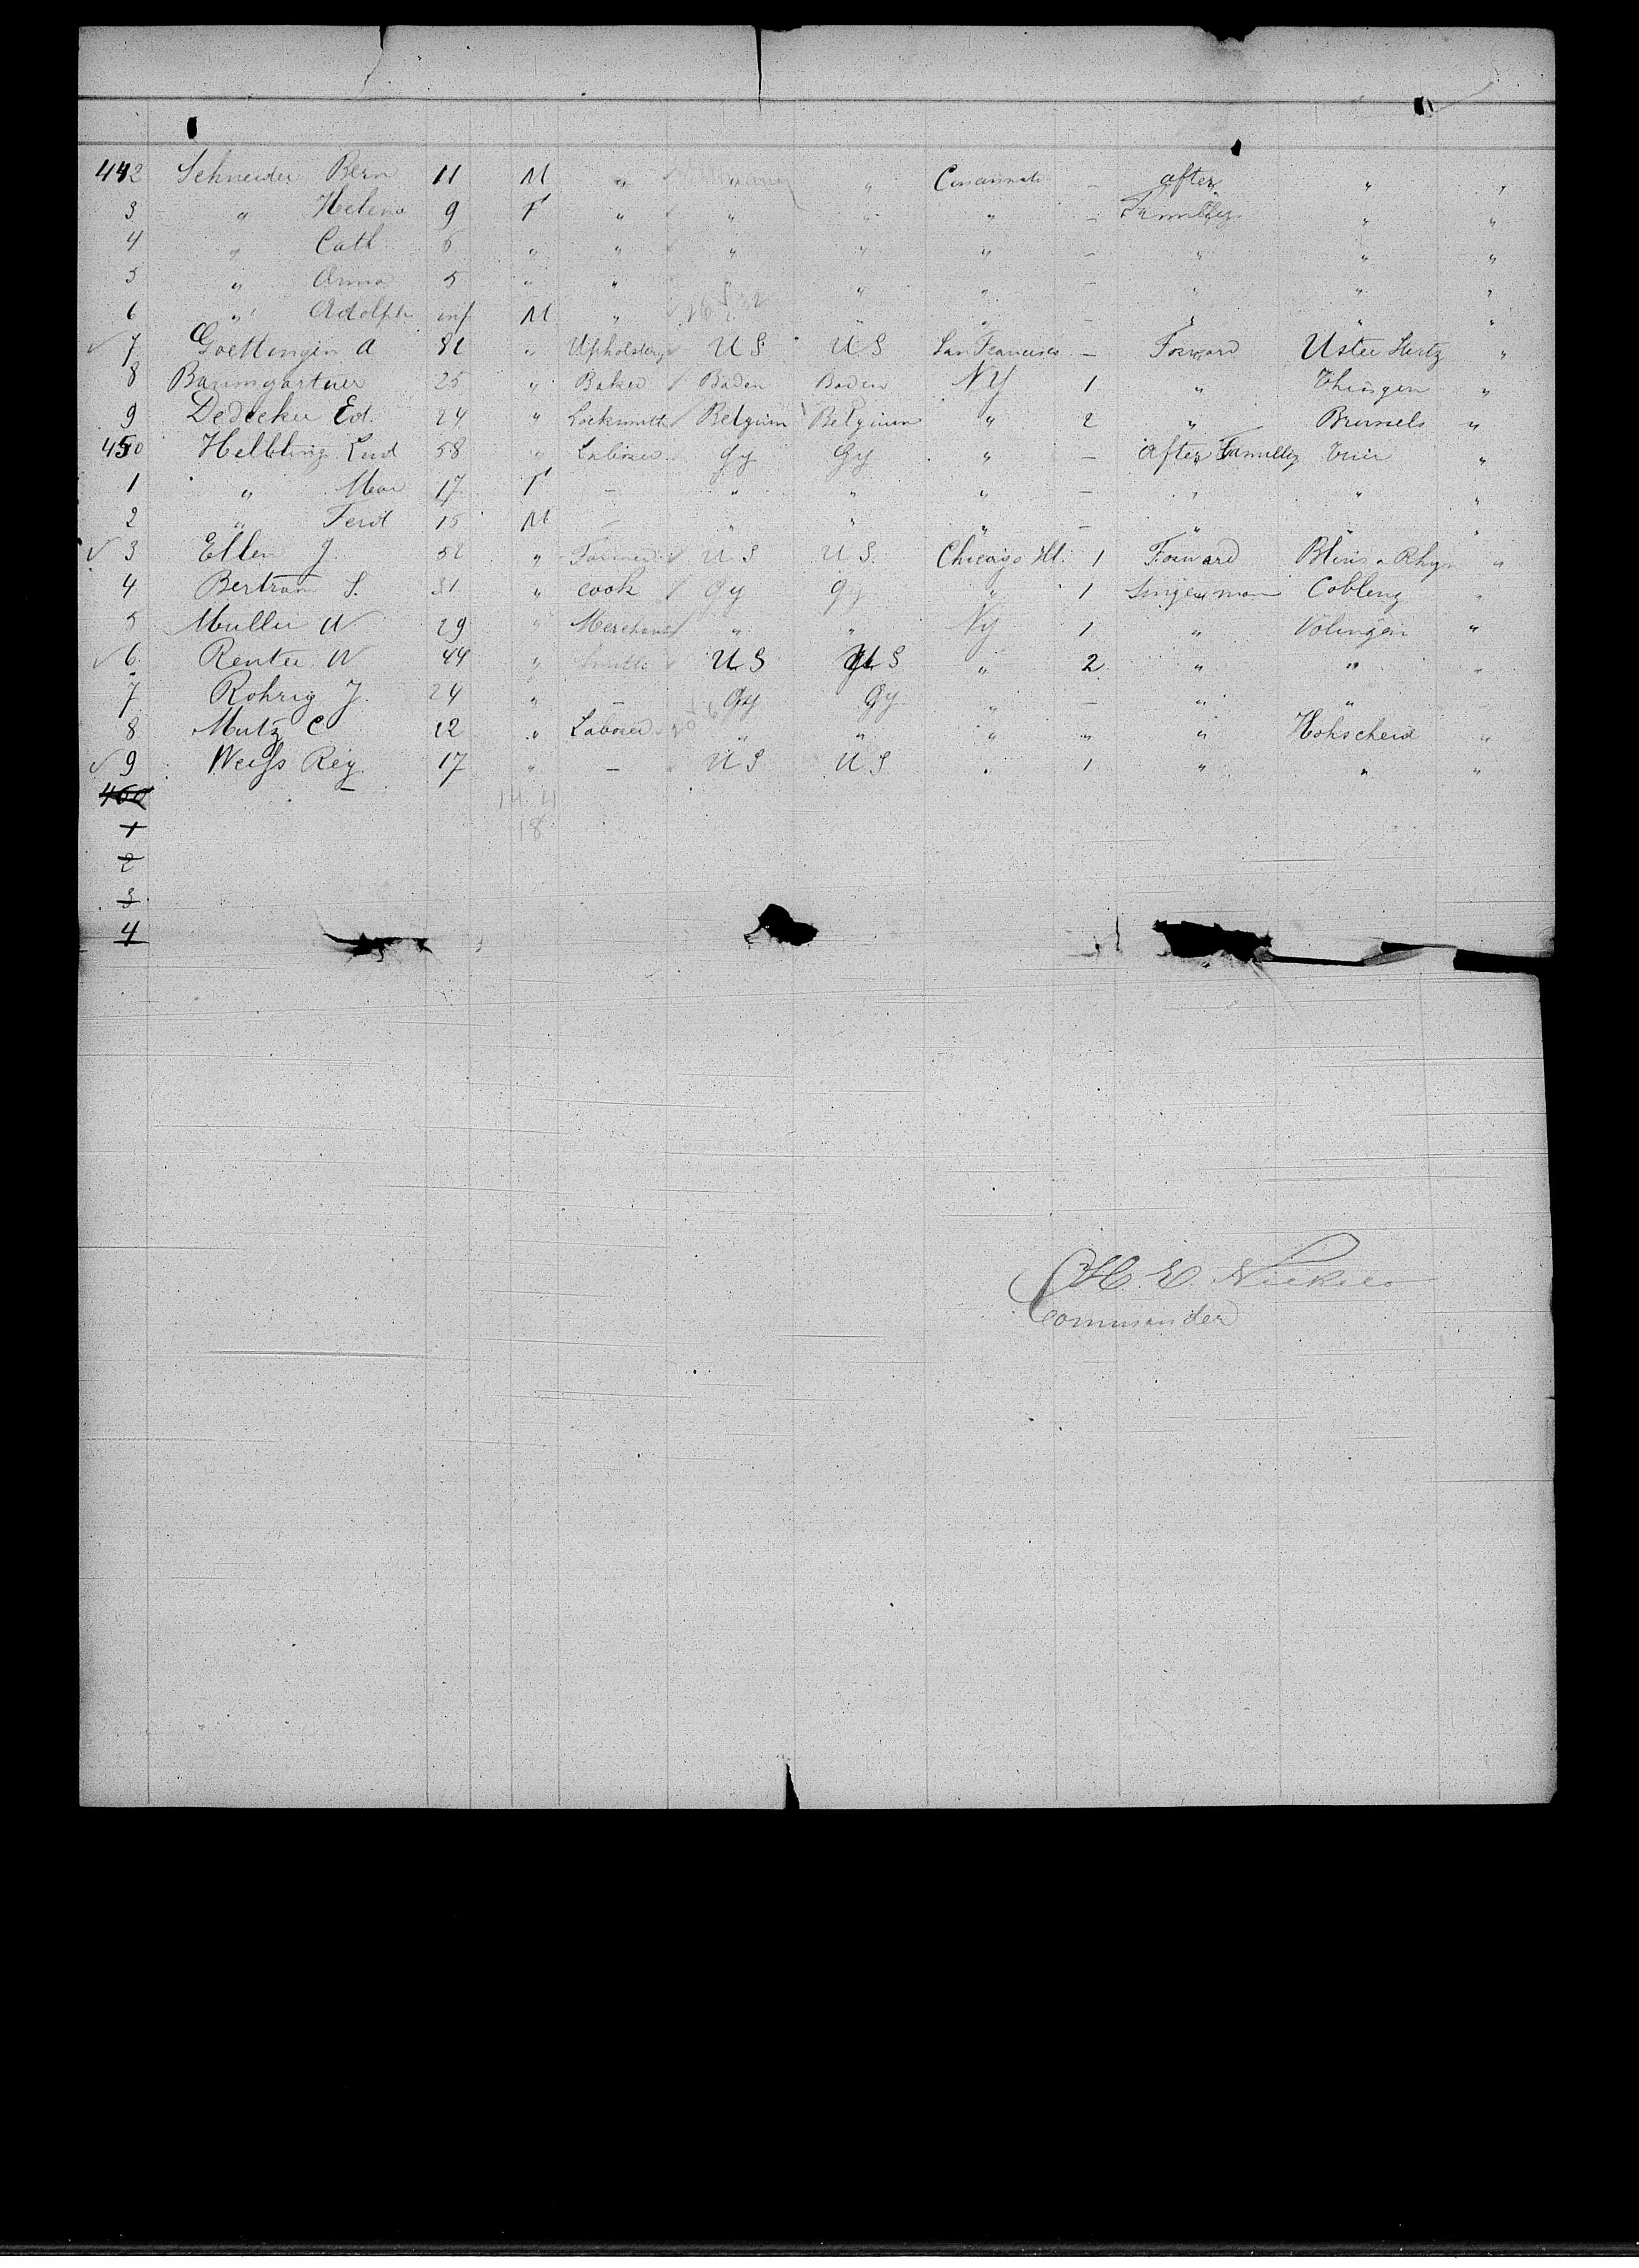 442 Schneider Bern 11 M " " " Cincinnati - after " "
3 " Helena 9 F " " " " - Familly " "
4 " Cath 6 " " " " " - " " "
5 " Anna 5 " " " " " - " " "
6 " Adolph inf M " " " - " " "
7 Goettingen A " Upholsterer U S U S San Francisco - Forward Uster Hertz "
8 Baumgartner 25 " Baker Baden Baden NY 1 " Thiengen "
9 Dedecker Ed. 24 " Locksmith Belgium Belgium " 2 " Brussels "
450 Helbling Lud 58 " Laborer Gy Gy " - After Familly Trier "
1 " Mar 17 F - " " " - " " "
2 " Ferd 15 M - " " " - " "
3 Ellen J. 52 " Farmer U S U S Chicago Ill. 1 Forward a Rhyn "
4 Bertram S. 31 " cook Gy Gy " 1 Coblenz "
5 Muller W 29 " Merchant " " NY 1 " "
6 Renter W 44 " Smith U S U S " 2 " " "
7 Rohrig J. 24 " - Gy Gy " - " "
8 Mutz C 12 " Laborer " " " " " Hohscheid "
9 Weiss Reg 17 " - U S U S " 1 " " "
460
1
2
3
4
14 4
18
H. E. Nickels
Commander